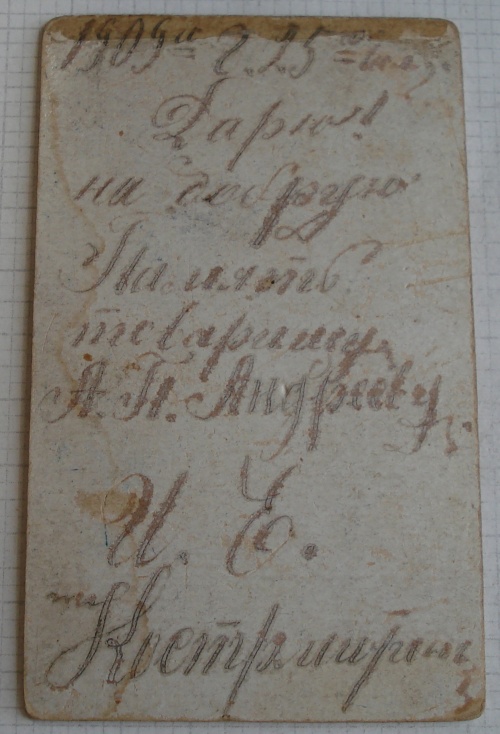 1909 Г. 25
Дарю
на добрую
Память
товарищу
А. П. Андрееву
И. Е.